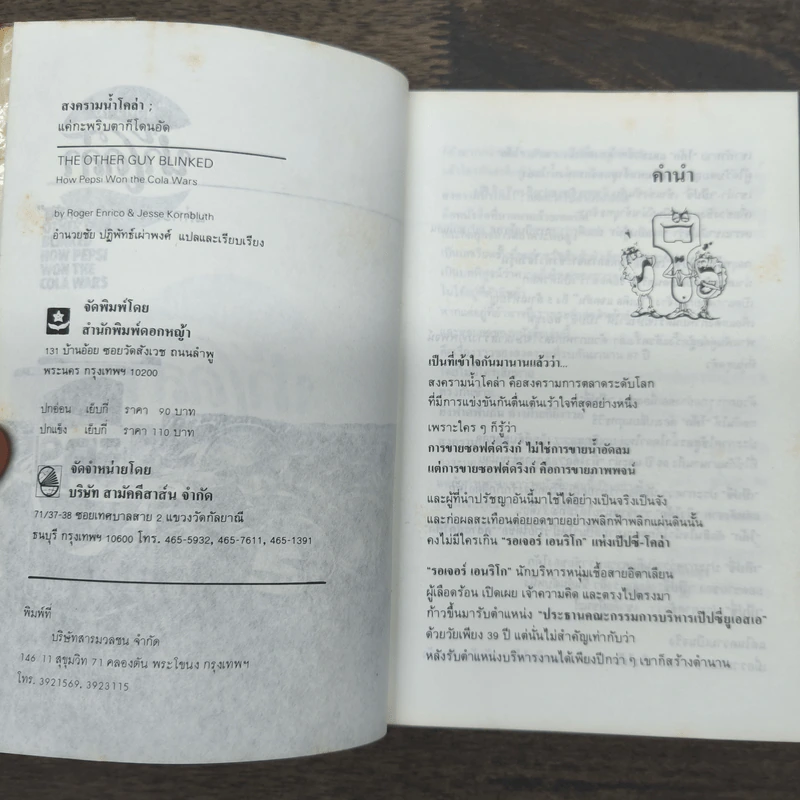 สงครามน้ำโคล่า ;
แค่กะพริบตาก็โดนอัด
THE OTHER GUY BLINKED
How Pepsi Won the Cola Wars
by Roger Enrico & Jesse Kornbluth
อำนวยชัย ปฏิพัทธ์เผ่าพงศ์ แปลและเรียบเรียง
HOW PEPSI
WON THE
COLA WARS
จัดพิมพ์โดย
สำนักพิมพ์ดอกหญ้า
131 บ้านอ้อย ซอยวัดสังเวช ถนนลำพู
พระนคร กรุงเทพฯ 10200
ปกอ่อน เย็บกี่ ราคา 90 บาท
ปกแข็ง เย็บกี่ ราคา 110 บาท
จัดจำหน่ายโดย
บริษัท สามัคคีสาส์น จำกัด
71/37-38 ซอยเทศบาลสาย 2 แขวงวัดกัลยาณี
ธนบุรี กรุงเทพฯ 10600 โทร. 465-5932, 465-7611, 465-1391
พิมพ์ที่
บริษัทสารมวลชน จำกัด
146/11 สุขุมวิท 71 คลองตัน พระโขนง กรุงเทพฯ
โทร. 3921569, 3923115
คำนำ
เป็นที่เข้าใจกันมานานแล้วว่า...
สงครามน้ำโคล่า คือสงครามการตลาดระดับโลก
ที่มีการแข่งขันกันตื่นเต้นเร้าใจที่สุดอย่างหนึ่ง
เพราะใคร ๆ ก็รู้ว่า
การขายซอฟต์ดริงก์ ไม่ใช่การขายน้ำอัดลม
แต่การขายซอฟต์ดริงก์ คือการขายภาพพจน์
และผู้ที่นำปรัชญาอันนี้มาใช้ได้อย่างเป็นจริงเป็นจัง
และก่อผลสะเทือนต่อยอดขายอย่างพลิกฟ้าพลิกแผ่นดินนั้น
คงไม่มีใครเกิน "รอเจอร์ เอนริโก" แห่งเป๊ปซี่-โคล่า
"รอเจอร์ เอนริโก" นักบริหารหนุ่มเชื้อสายอิตาเลียน
ผู้เลือดร้อน เปิดเผย เจ้าความคิด และตรงไปตรงมา
ก้าวขึ้นมารับตำแหน่ง "ประธานคณะกรรมการบริหารเป๊ปซี่ยูเอสเอ"
ด้วยวัยเพียง 39 ปี แต่นั่นไม่สำคัญเท่ากับว่า
หลังรับตำแหน่งบริหารงานได้เพียงปีกว่า ๆ เขาก็สร้างตำนาน